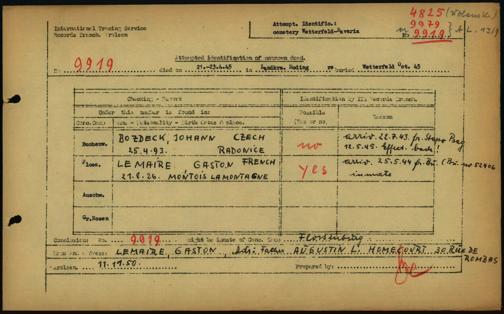 International Tracing Service
Records Branch. Arolsen
Attempt. Identific.:
cemetery Wetterfeld-Bavaria
4825
9979
No 9919
Attempted identification of unknown dead.
No: 9919 died on 21.-23.4.45 in Landkrs. Roding re buried Wetterfeld Oct. 45
Checking - Report
Identification by ITS Records Branch.
Under this number is found in:
Possible
Reason
Conc. Camp
Name - Nationality - Birth date & place.
(Yes or no)
Buchenw.
BOZDECK, JOHANN CZECH
25.4.93. RADONICE
no
arriv. 22.7.43 fr. Stapo Prag
12.5.45 back!
Floss.
LEMAIRE GASTON FRENCH
21.8.26. MONTOIS LAMONTAGNE
yes
arriv. 25.5.44 fr. Bu. (Bu. no 52406
inmate
Auschw.
Gr.Rosen
Conclusion: No. 9919 might be inmate of Conc. Camp Flossenbürg
LEMAIRE, GASTON, Father AUGUSTIN L. HOMECOURT 30 RUE DE
ROMBAS
Arolsen 11.11.50.
Prepared by: